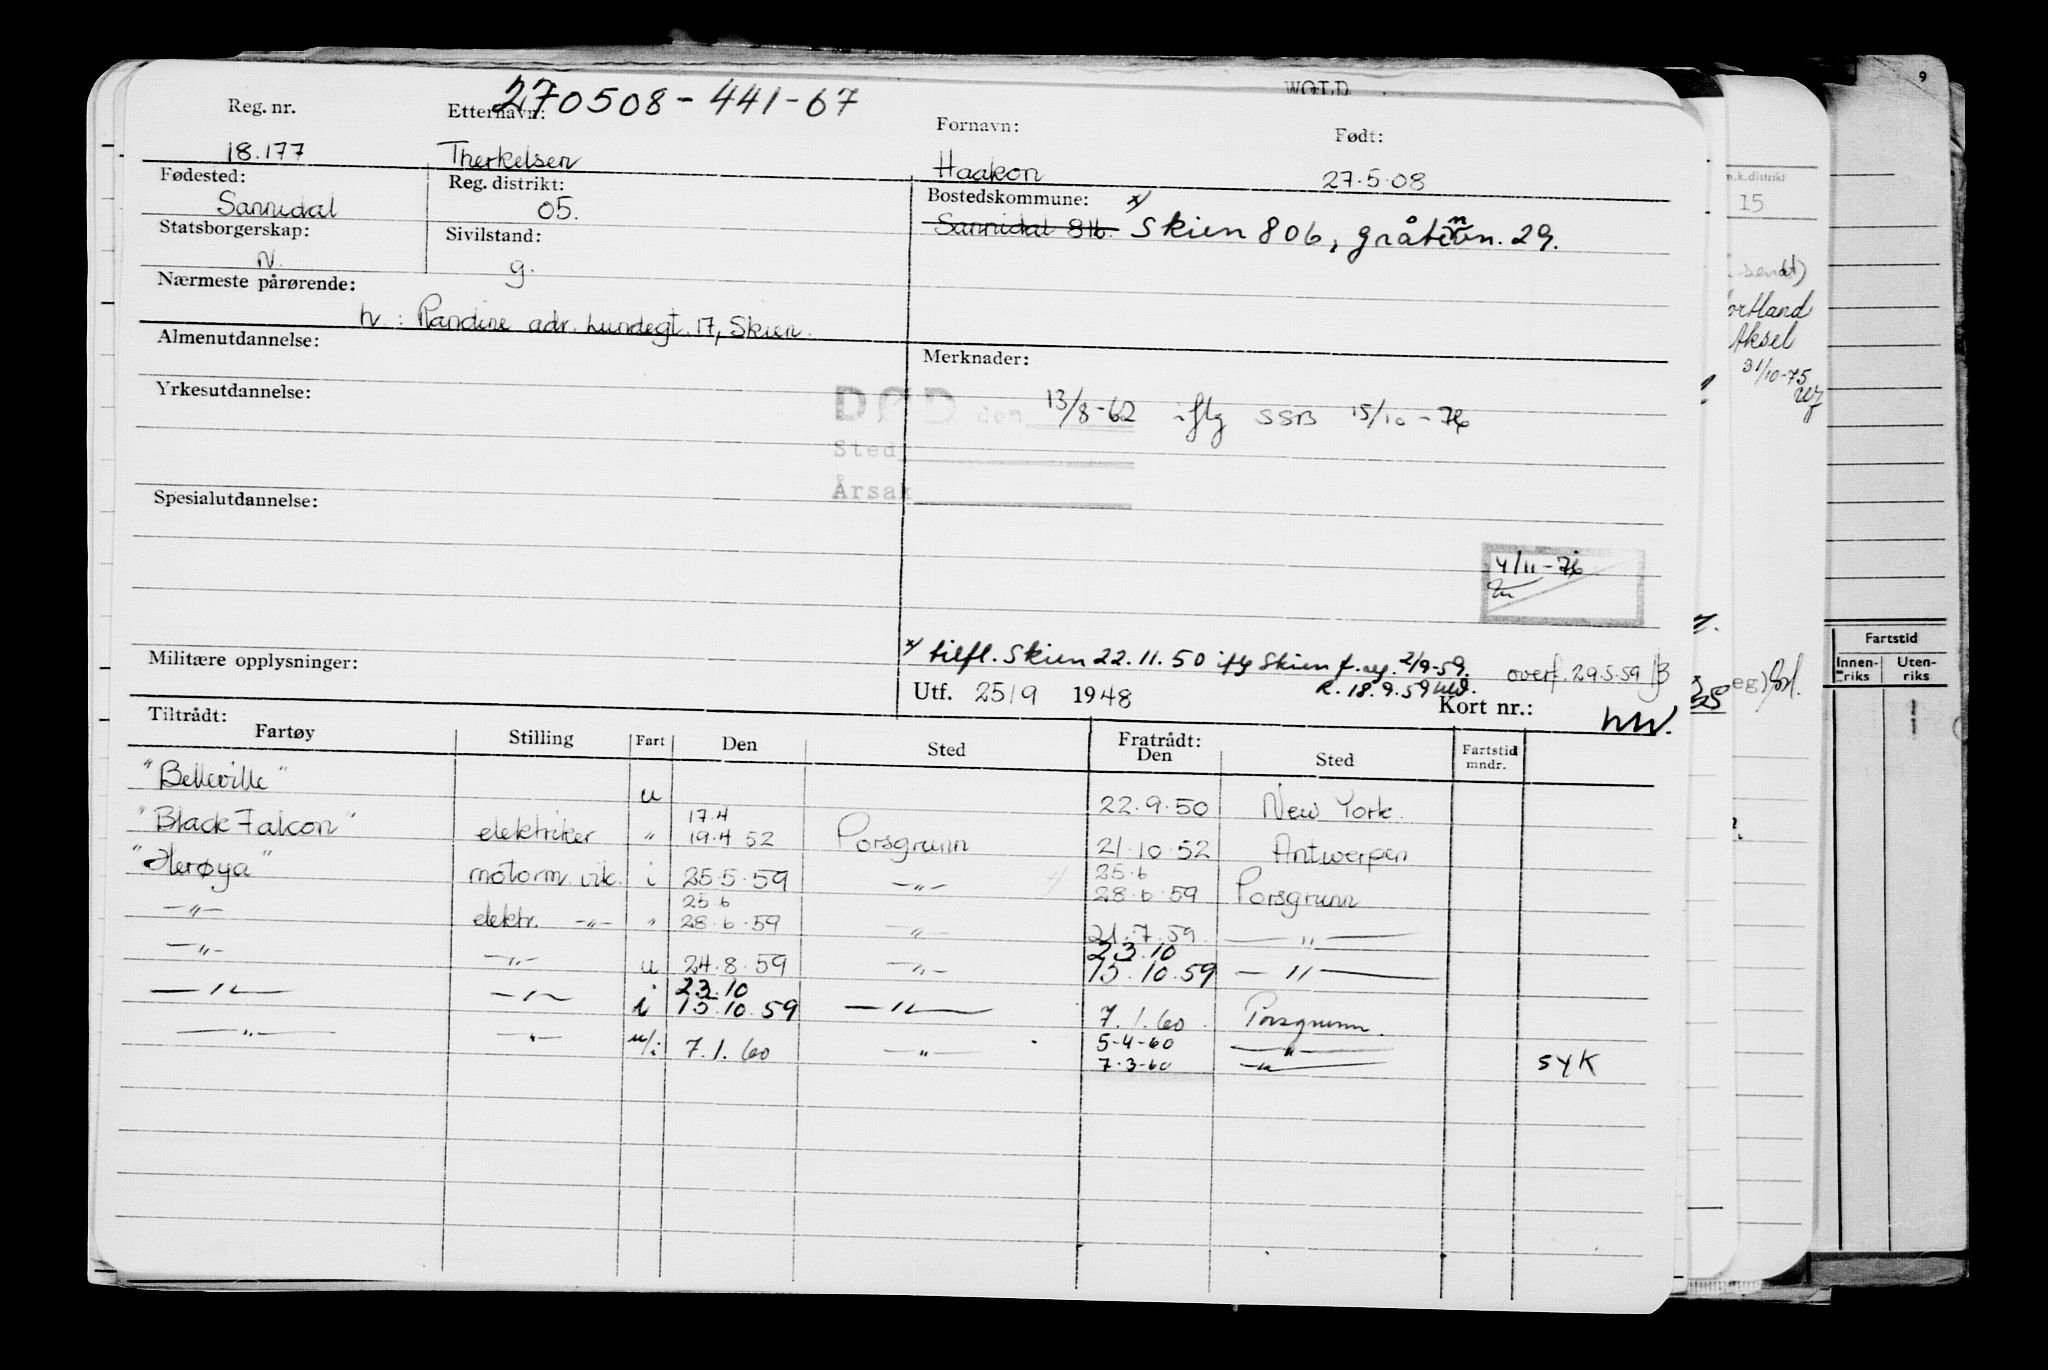 270508-441-67
WOLD
Reg. nr. Etternavn: Fornavn: Født:
18.177 Therkelsen Haakon 27.5.08
Fødested: Reg. distrikt: Bostedskommune:
Sannidal 05. Sannidal 816. x/ Skien 806, gråtenvn. 29.
Statsborgerskap: Sivilstand:
N. g.
Nærmeste pårørende:
h.: Randine adr. Lundegt. 17, Skien.
Almenutdannelse: Merknader:
Yrkesutdannelse:
DØD den 13/8-62 iflg SSB 15/10-76
Sted
Årsak
Spesialutdannelse:
4/11-76
Militære opplysninger:
x/ tilfl. Skien 22.11.50 iflg Skien f.reg. 2/9-59. overf. 29.5.59
R. 18.9.59
Utf. 25/9 1948 Kort nr.:
Tiltrådt: Fratrådt:
Fartøy Stilling Fart Den Sted Den Sted Fartstid mndr.
"Belleville" u 22.9.50 New York.
17.4
"Black Falcon" elektriker " 19.4 52 Porsgrunn 21.10.52 Antwerpen
25.6
"Herøya" motorm. vik. i 25.5.59 -"- 28.6.59 Porsgrunn
25.6
-"- elektr. -"- " 28.6.59 -"- 21.7.59. -"-
23.10
-"- -"- u 24.8.59 -"- 15.10.59 -"-
23.10
-"- -"- i 15.10.59 -"- 7.1.60. Porsgrunn.
5-4-60 -"-
-"- -"- u/i 7.1.60 -"- 7-3-60 -"- SYK
9
m.k.distrikt
15
Aksel
31/10-75
Fartstid
Innen-riks Uten-riks